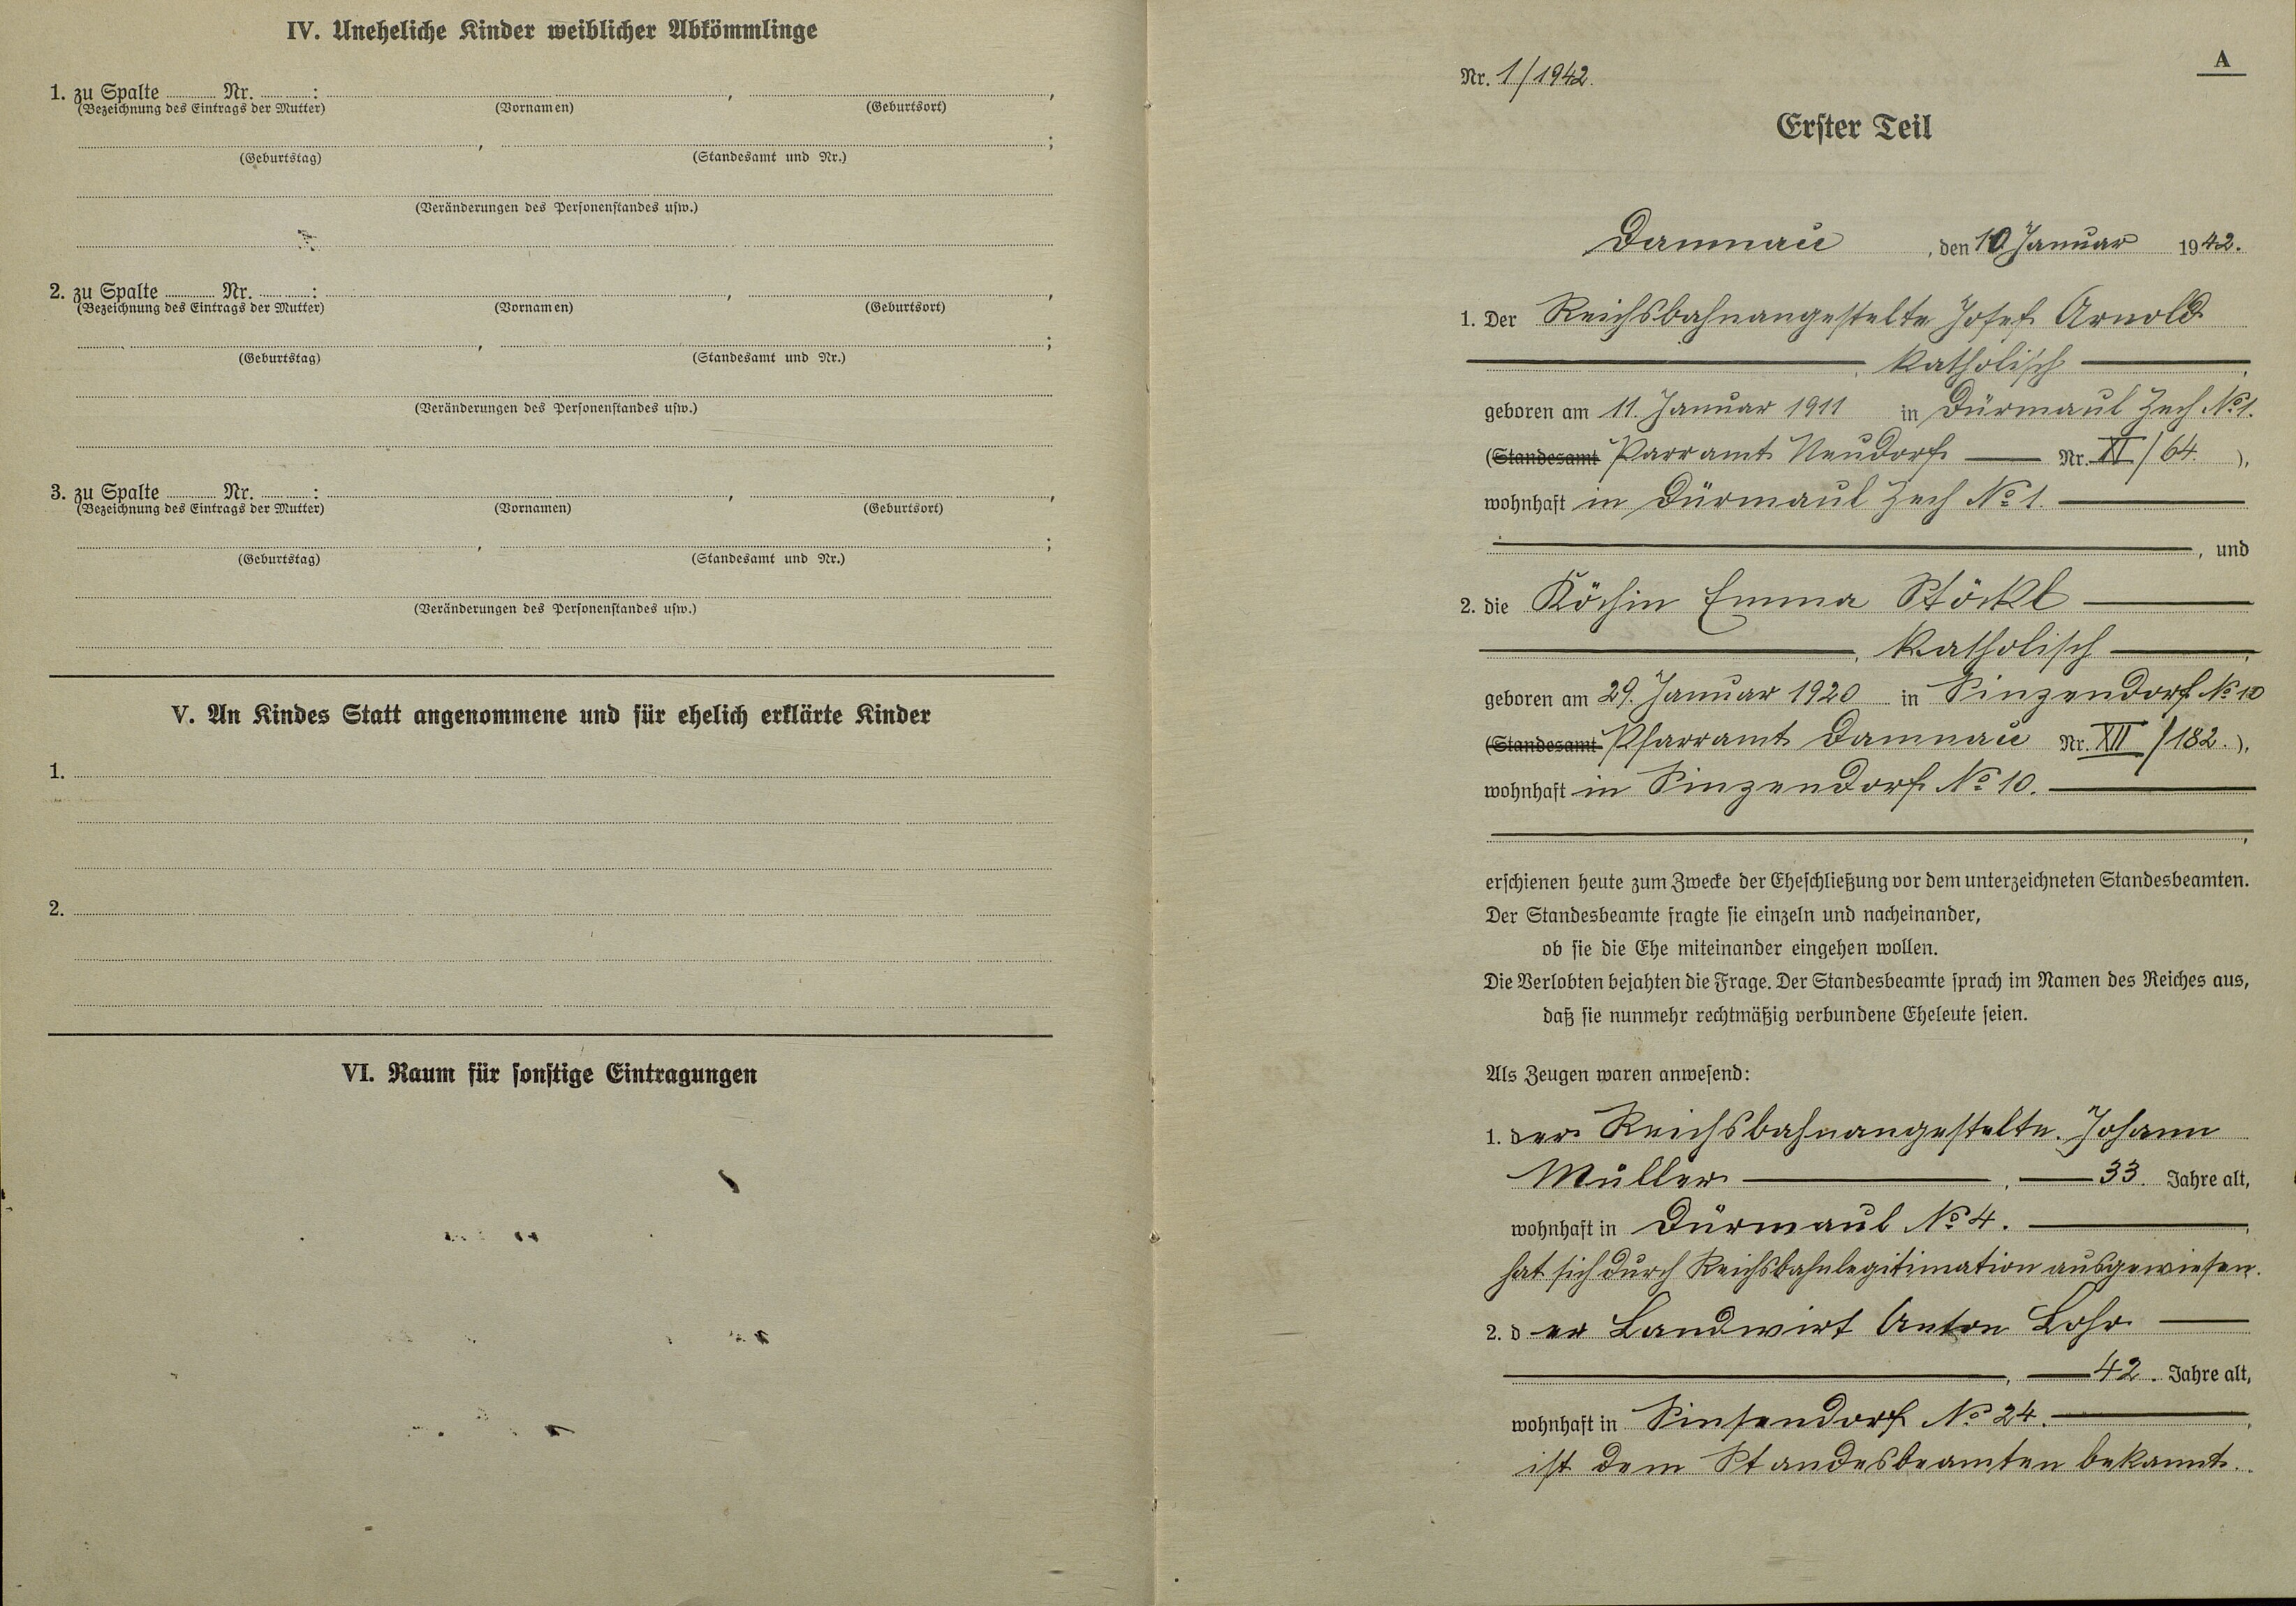 IV. Uneheliche Kinder weiblicher Abkömmlinge
1. zu Spalte ........ Nr. ........ : ........ , ........ ,
(Bezeichnung des Eintrags der Mutter) (Vornamen) (Geburtsort)
........ , ........ ;
(Geburtstag) (Standesamt und Nr.)
(Veränderungen des Personenstandes usw.)
2. zu Spalte ........ Nr. ........ : ........ , ........ ,
(Bezeichnung des Eintrags der Mutter) (Vornamen) (Geburtsort)
........ , ........ ;
(Geburtstag) (Standesamt und Nr.)
(Veränderungen des Personenstandes usw.)
3. zu Spalte ........ Nr. ........ : ........ , ........ ,
(Bezeichnung des Eintrags der Mutter) (Vornamen) (Geburtsort)
........ , ........ ;
(Geburtstag) (Standesamt und Nr.)
(Veränderungen des Personenstandes usw.)
V. An Kindes Statt angenommene und für ehelich erklärte Kinder
1.
2.
VI. Raum für sonstige Eintragungen
A
Nr. 1/1942.
Erster Teil
Damnau , den 10 Januar 1942.
1. Der Reichsbahnangestelte Josef Arnold
, katholisch ,
geboren am 11. Januar 1911 in Dürmaul Zech No 1.
(Standesamt Parramt Neudorf Nr. XI/64. ),
wohnhaft in Dürmaul Zech No 1.
, und
2. die Köchin Emma Stöckl
, katholisch ,
geboren am 29. Januar 1920 in Sinzendorf No 10
(Standesamt Pfarramt Damnau Nr. XII/182. ),
wohnhaft in Sinzendorf No 10.
,
erschienen heute zum Zwecke der Eheschließung vor dem unterzeichneten Standesbeamten.
Der Standesbeamte fragte sie einzeln und nacheinander,
ob sie die Ehe miteinander eingehen wollen.
Die Verlobten bejahten die Frage. Der Standesbeamte sprach im Namen des Reiches aus,
daß sie nunmehr rechtmäßig verbundene Eheleute seien.
Als Zeugen waren anwesend:
1. der Reichsbahnangestelte Johann
Müller , 33. Jahre alt,
wohnhaft in Dürmaul No 4. ,
hat sich durch Reichsbahnlegitimation ausgewiesen.
2. der Landwirt Anton Lohr
, 42. Jahre alt,
wohnhaft in Sinsendorf No 24. ,
ist dem Standesbeamten bekannt.